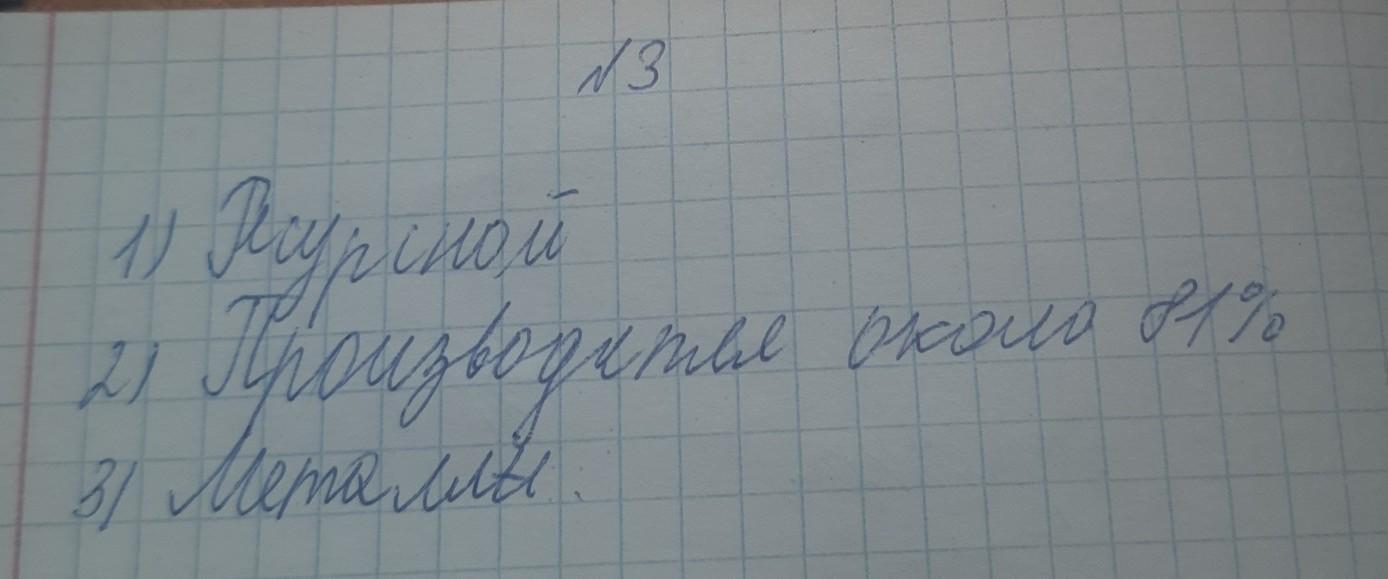 №3
1) Курской
2) Производится около 81%
3) Металлы.